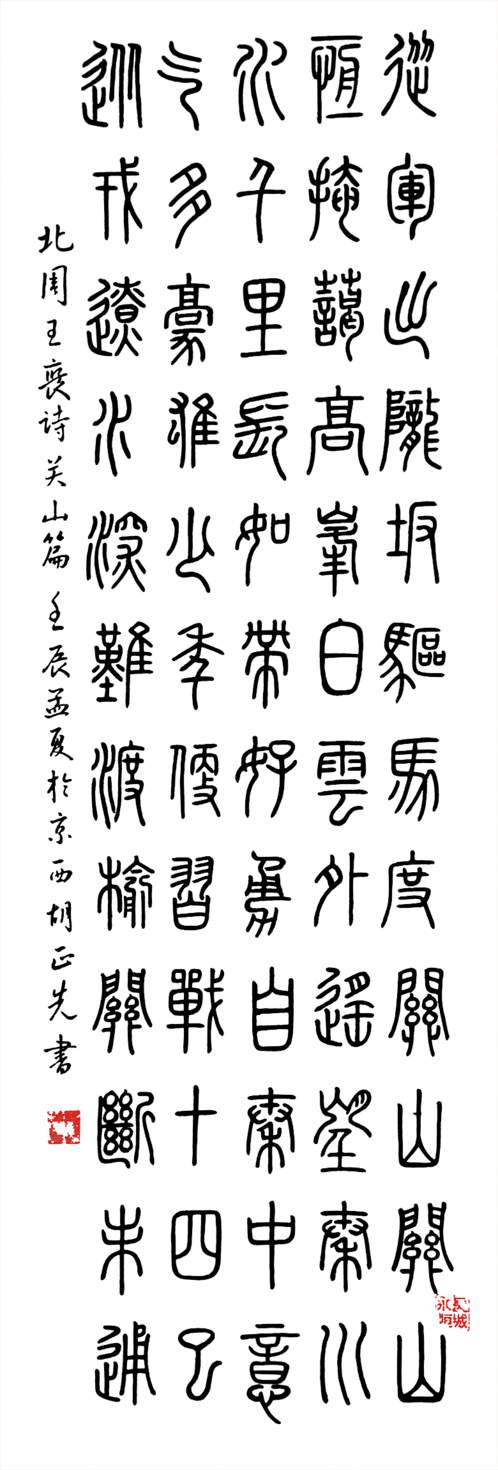 從軍出隴坂驅馬度關山關山
恆掩藹高峯白雲外遙望秦川
水千里長如帶好勇自秦中意
气多豪雄少年便習戰十四已
巡戎遼水深難渡榆關斷未通
北周王褒诗关山篇 壬辰孟夏於京西胡正先書